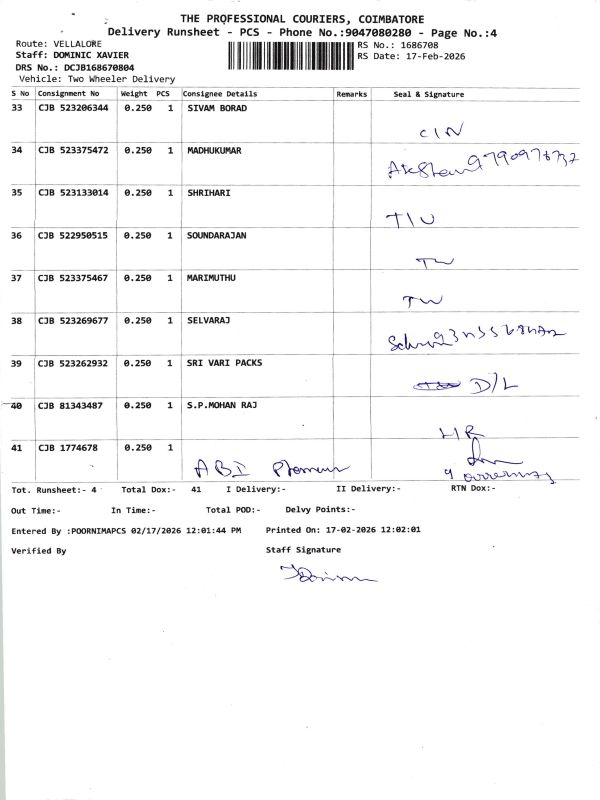 THE PROFESSIONAL COURIERS, COIMBATORE
Delivery Runsheet - PCS - Phone No.:9047080280 - Page No.:4
Route: VELLALORE
RS No.: 1686708
Staff: DOMINIC XAVIER
RS Date: 17-Feb-2026
DRS No.: DCJB168670804
Vehicle: Two Wheeler Delivery
S No Consignment No Weight PCS Consignee Details Remarks Seal & Signature
33 CJB 523206344 0.250 1 SIVAM BORAD
CIN
34 CJB 523375472 0.250 1 MADHUKUMAR
35 CJB 523133014 0.250 1 SHRIHARI
36 CJB 522950515 0.250 1 SOUNDARAJAN
37 CJB 523375467 0.250 1 MARIMUTHU
38 CJB 523269677 0.250 1 SELVARAJ
39 CJB 523262932 0.250 1 SRI VARI PACKS
D/L
40 CJB 81343487 0.250 1 S.P.MOHAN RAJ
41 CJB 1774678 0.250 1
ABI
Tot. Runsheet:- 4 Total Dox:- 41 I Delivery:- II Delivery:- RTN Dox:-
Out Time:- In Time:- Total POD:- Delvy Points:-
Entered By :POORNIMAPCS 02/17/2026 12:01:44 PM Printed On: 17-02-2026 12:02:01
Verified By Staff Signature